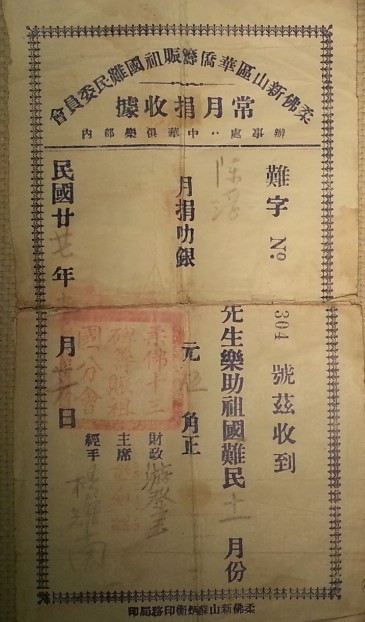 柔佛新山區華僑籌賑祖國難民委員會
常月捐收據
辦事處：中華俱樂部內
難字 № 304 號茲收到
陳 先生樂助祖國難民十一月份
月捐叻銀 元伍角正
財政
主席
經手
民國廿七年 月 日
柔佛十二
碑華賑祖
國分會
柔佛新山 街印務局印